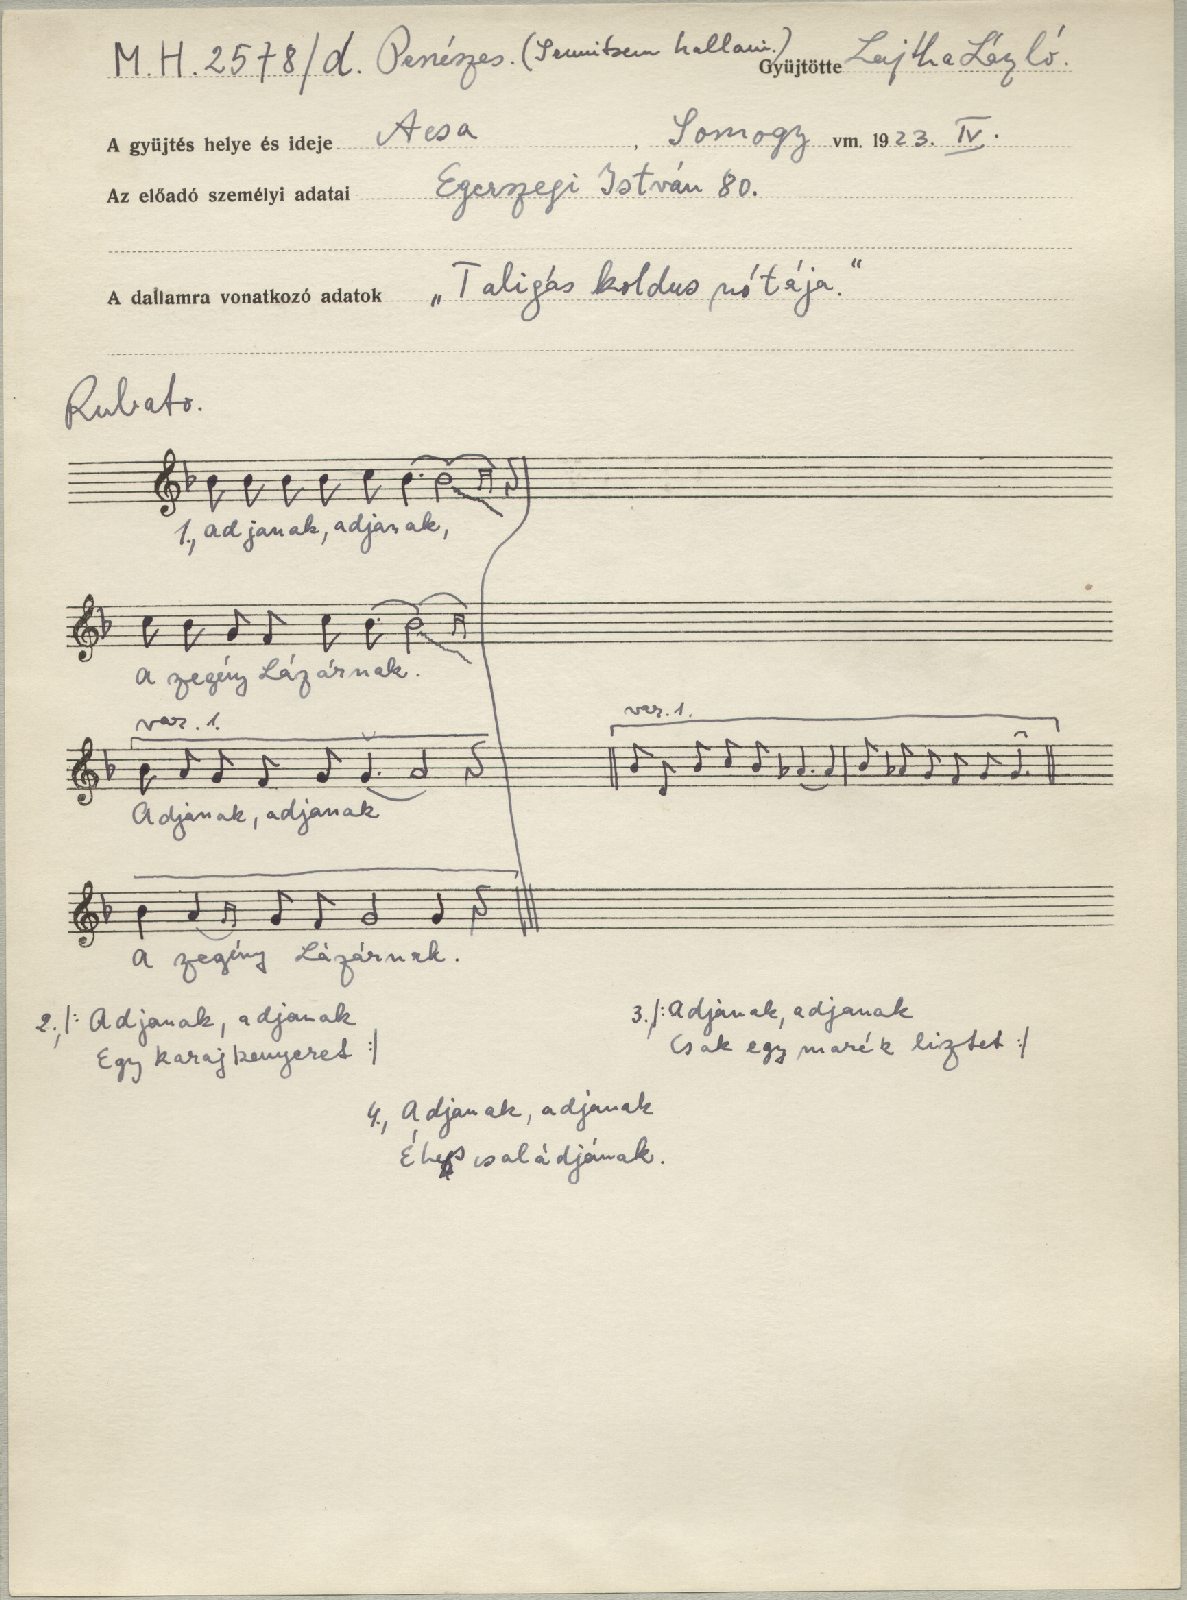 M.H. 2578/d. Penészes. (Semmitsem hallani.) Gyüjtötte Lajtha László.
A gyüjtés helye és ideje Acsa, Somogy vm. 1923. IV.
Az előadó személyi adatai Egerszegi István 80.
A dallamra vonatkozó adatok „Taligás koldus nótája."
Rubato.
1., Adjanak, adjanak,
A zegény Lázárnak.
var. 1. var. 1.
Adjanak, adjanak
A zegény Lázárnak.
2., /: Adjanak, adjanak
Egy karaj kenyeret :/
3., /: Adjanak, adjanak
Csak egy marék liztet :/
4., Adjanak, adjanak
Éhes családjának.